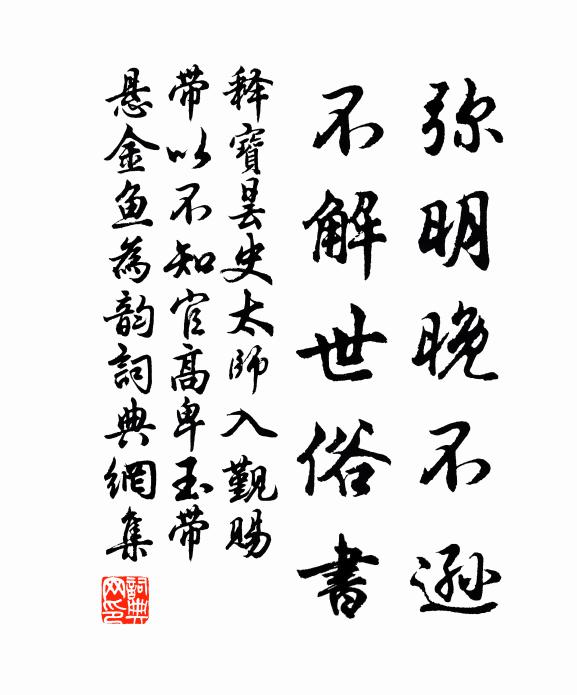 弥明晚不逊
不解世俗書
释寶昙史太师入觐賜
带以不知官高卑玉带
悬金鱼為韵詞典網集
詞典网印